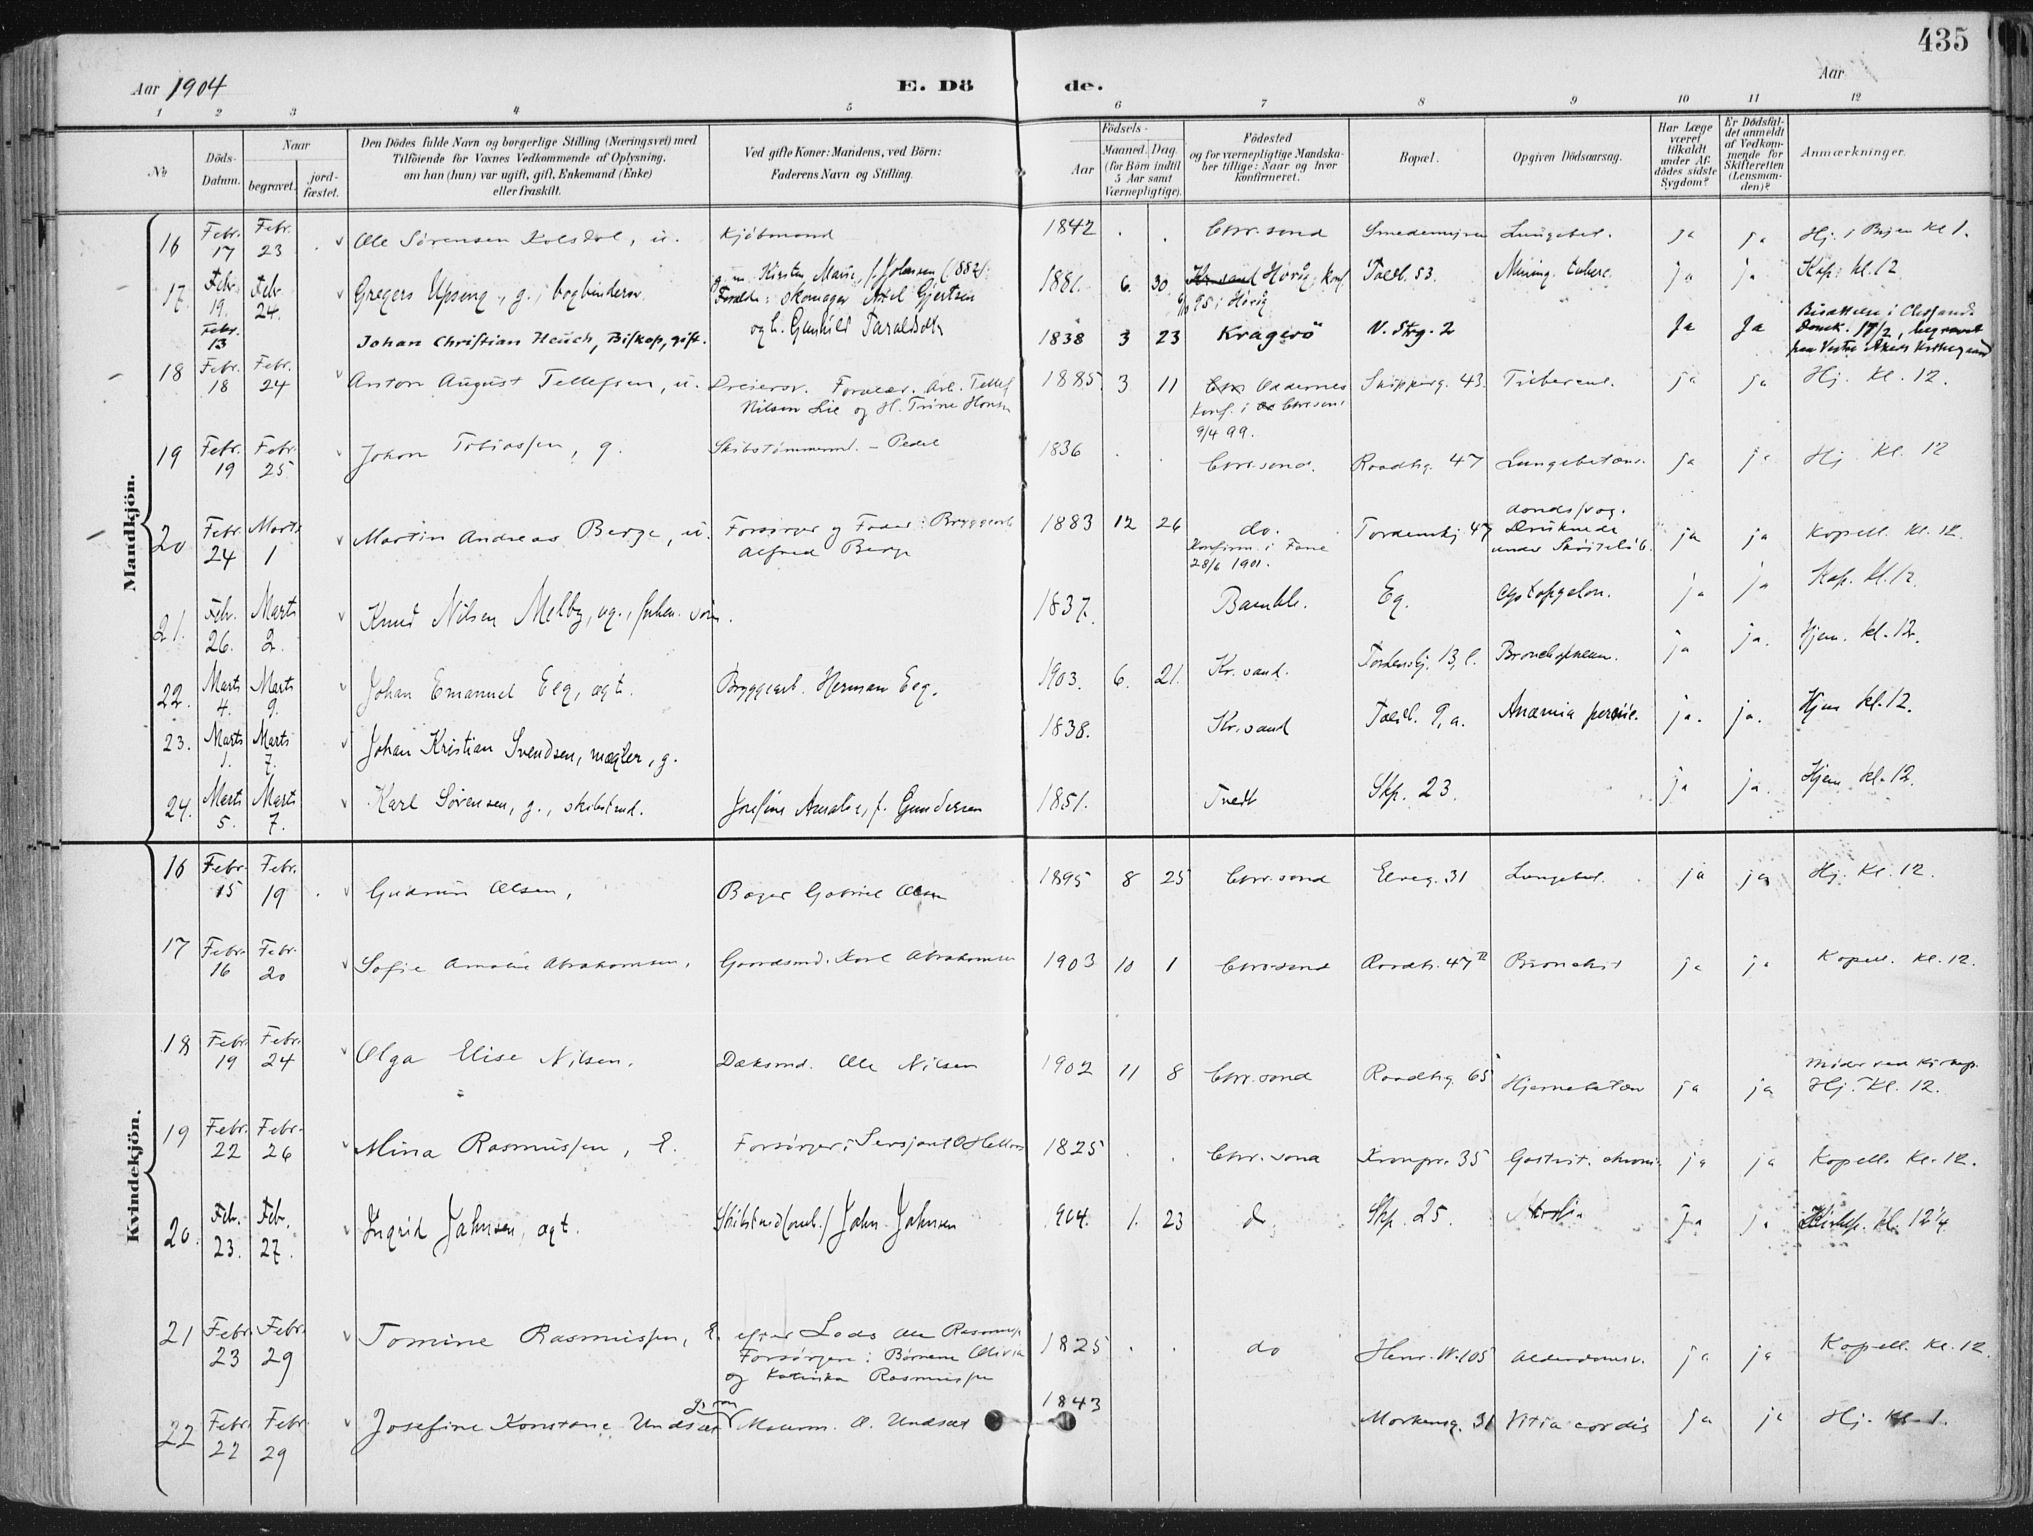 435
Aar 1904
E. Dö de.
Aar
1 2 3 4 5 6 7 8 9 10 11 12
No
Döds-Datum.
Naar begravet. jord-fæstet.
Den Dödes fulde Navn og borgerlige Stilling (Næringsvei) med Tilföiende for Voxnes Vedkommende af Oplysning, om han (hun) var ugift, gift, Enkemand (Enke) eller fraskilt.
Ved gifte Koner: Mandens, ved Börn: Faderens Navn og Stilling.
Födsels-
Aar
Maaned. Dag. (for Börn indtil 5 Aar samt Værnepligtige).
Födested og for værnepligtige Mandskaber tillige: Naar og hvor konfirmeret.
Bopæl.
Opgiven Dödsaarsag.
Har Læge været tilkaldt under Afdödes sidste Sygdom?
Er Dödsfaldet anmeldt af Vedkommende for Skifteretten (Lensmanden)?
Anmærkninger.
Mandkjön.
16 Febr. 17 Febr. 23 Ole Sørensen Kolsdal, u. Kjøbmand 1842 Chr.sand Smedemyren Lungebet. ja ja Hj. i Byen Kl 1.
17. Febr. 19. Febr. 24. Gregers Upsong, g., bogbindersv. g. m. Kirsten Marie, f. Johnsen (1882).
Foræld: Skomager Axel Gjertsen og h. Gunhild Taraldsdtr 1881. 6. 30 Høvåg, konf. 95 i Høvåg Tollb. 53. Mening. tuberc. ja ja Kap. kl. 12
Febr. 13 Johan Christian Heuch, Biskop, gift. 1838 3 23 Kragerö V. Strg. 2 Ja Ja Bisættelse i Chrssands Domk. 17/2, begravet paa Vestre Akers Kirkegaard
18 Febr. 18 Febr. 24 Anton August Tellefsen, u. Dreiersv. Forældr. Arb. Tellef Nilsen Lie og H. Trine Hansen 1885 3 11 Oddernes konf. i Chrsand 9/4 99. Skipperg. 43. Tubercul. ja ja Hj. Kl. 12.
19 Febr. 19 Febr. 25 Johan Tobiassen, g. Skibstømmermd. - Pedel 1836 Chr.sand. Raadhg. 47 Lungebetænd. ja ja Hj Kl. 12
20 Febr. 24 Marts 1 Martin Andreas Berge, u. Forsørger og Fader: Bryggearb Alfred Berge 1883 12 26 do. Konfirm. i Fane 28/6 1901. Tordenskj 47 Druknede under Skøiteløb. ja ja Kapell. Kl. 12.
21. Febr. 26. Marts 2. Knud Nilsen Melby, ug., 1837. Bamble. Eg. ja ja Kap. kl. 12.
22. Marts 4. Marts 9. Johan Emanuel Eeg, ugt. Bryggearb. Herman Eeg. 1903. 6. 21. Kr.sand. Tordenskj. 13, l. Bronchopneum. ja ja. Hjem. kl. 12.
23. Marts 1. Marts 7. Johan Kristian Svendsen, mægler, g. 1838. Kr.sand Tollb. 9, a. Anæmia pernic. ja. ja. Hjem kl. 12.
24. Marts 5. Marts 7. Karl Sørensen, g., skibstmd. Josefine Amalie, f. Gundersen 1851. Tvedt Skp. 23. ja ja. Hjem. kl. 12.
Kvindekjön.
16 Febr. 15 Febr. 19 Gudrun Olsen, Bager Gabriel Olsen 1895 8 25 Chr.sand Elveg. 31 Lungebet. ja ja Hj. Kl. 12.
17 Febr. 16 Febr. 20 Sofie Amalie Abrahamsen, Gaardsmd. Karl Abrahamsen 1903 10 1 Chr.sand Raadh. 47 II Bronchit ja ja Kapell. Kl. 12.
18 Febr. 19 Febr. 24 Olga Elise Nilsen. Dæksmd. Ole Nilsen 1902 11 8 Chr.sand Raadhg. 65 Hjernebetæn ja ja Møder ved Kirkegr. Hj. Kl. 12.
19 Febr. 22 Febr. 26 Mina Rasmussen, E. Forsørger: Sersjant 1825 Chr.sand Kronpr. 35 Gastrit. chroni. ja ja Kapell. Kl. 12.
20. Feb. 23. Feb. 27. Ingrid Jahnsen, ugt. Skibstmd John Jahnsen 1904. 1. 23 do Skp. 25. ja ja Kirkep. kl. 12 1/4
21 Febr. 23 Febr. 29 Tomine Rasmussen, E. efter Lods Ole Rasmussen
Forsørgere: Børnene Olivia og Katinka Rasmussen 1825 do Henr. W. 105 Alderdomsv. ja ja Kapell. Kl. 12.
22 Febr. 22 Febr. 29 Josefine Konstance Undsæt g. m. Malerm. O. Undsæt 1843 Markensg. 31 Vitia cordis ja ja Hj. Kl. 1.